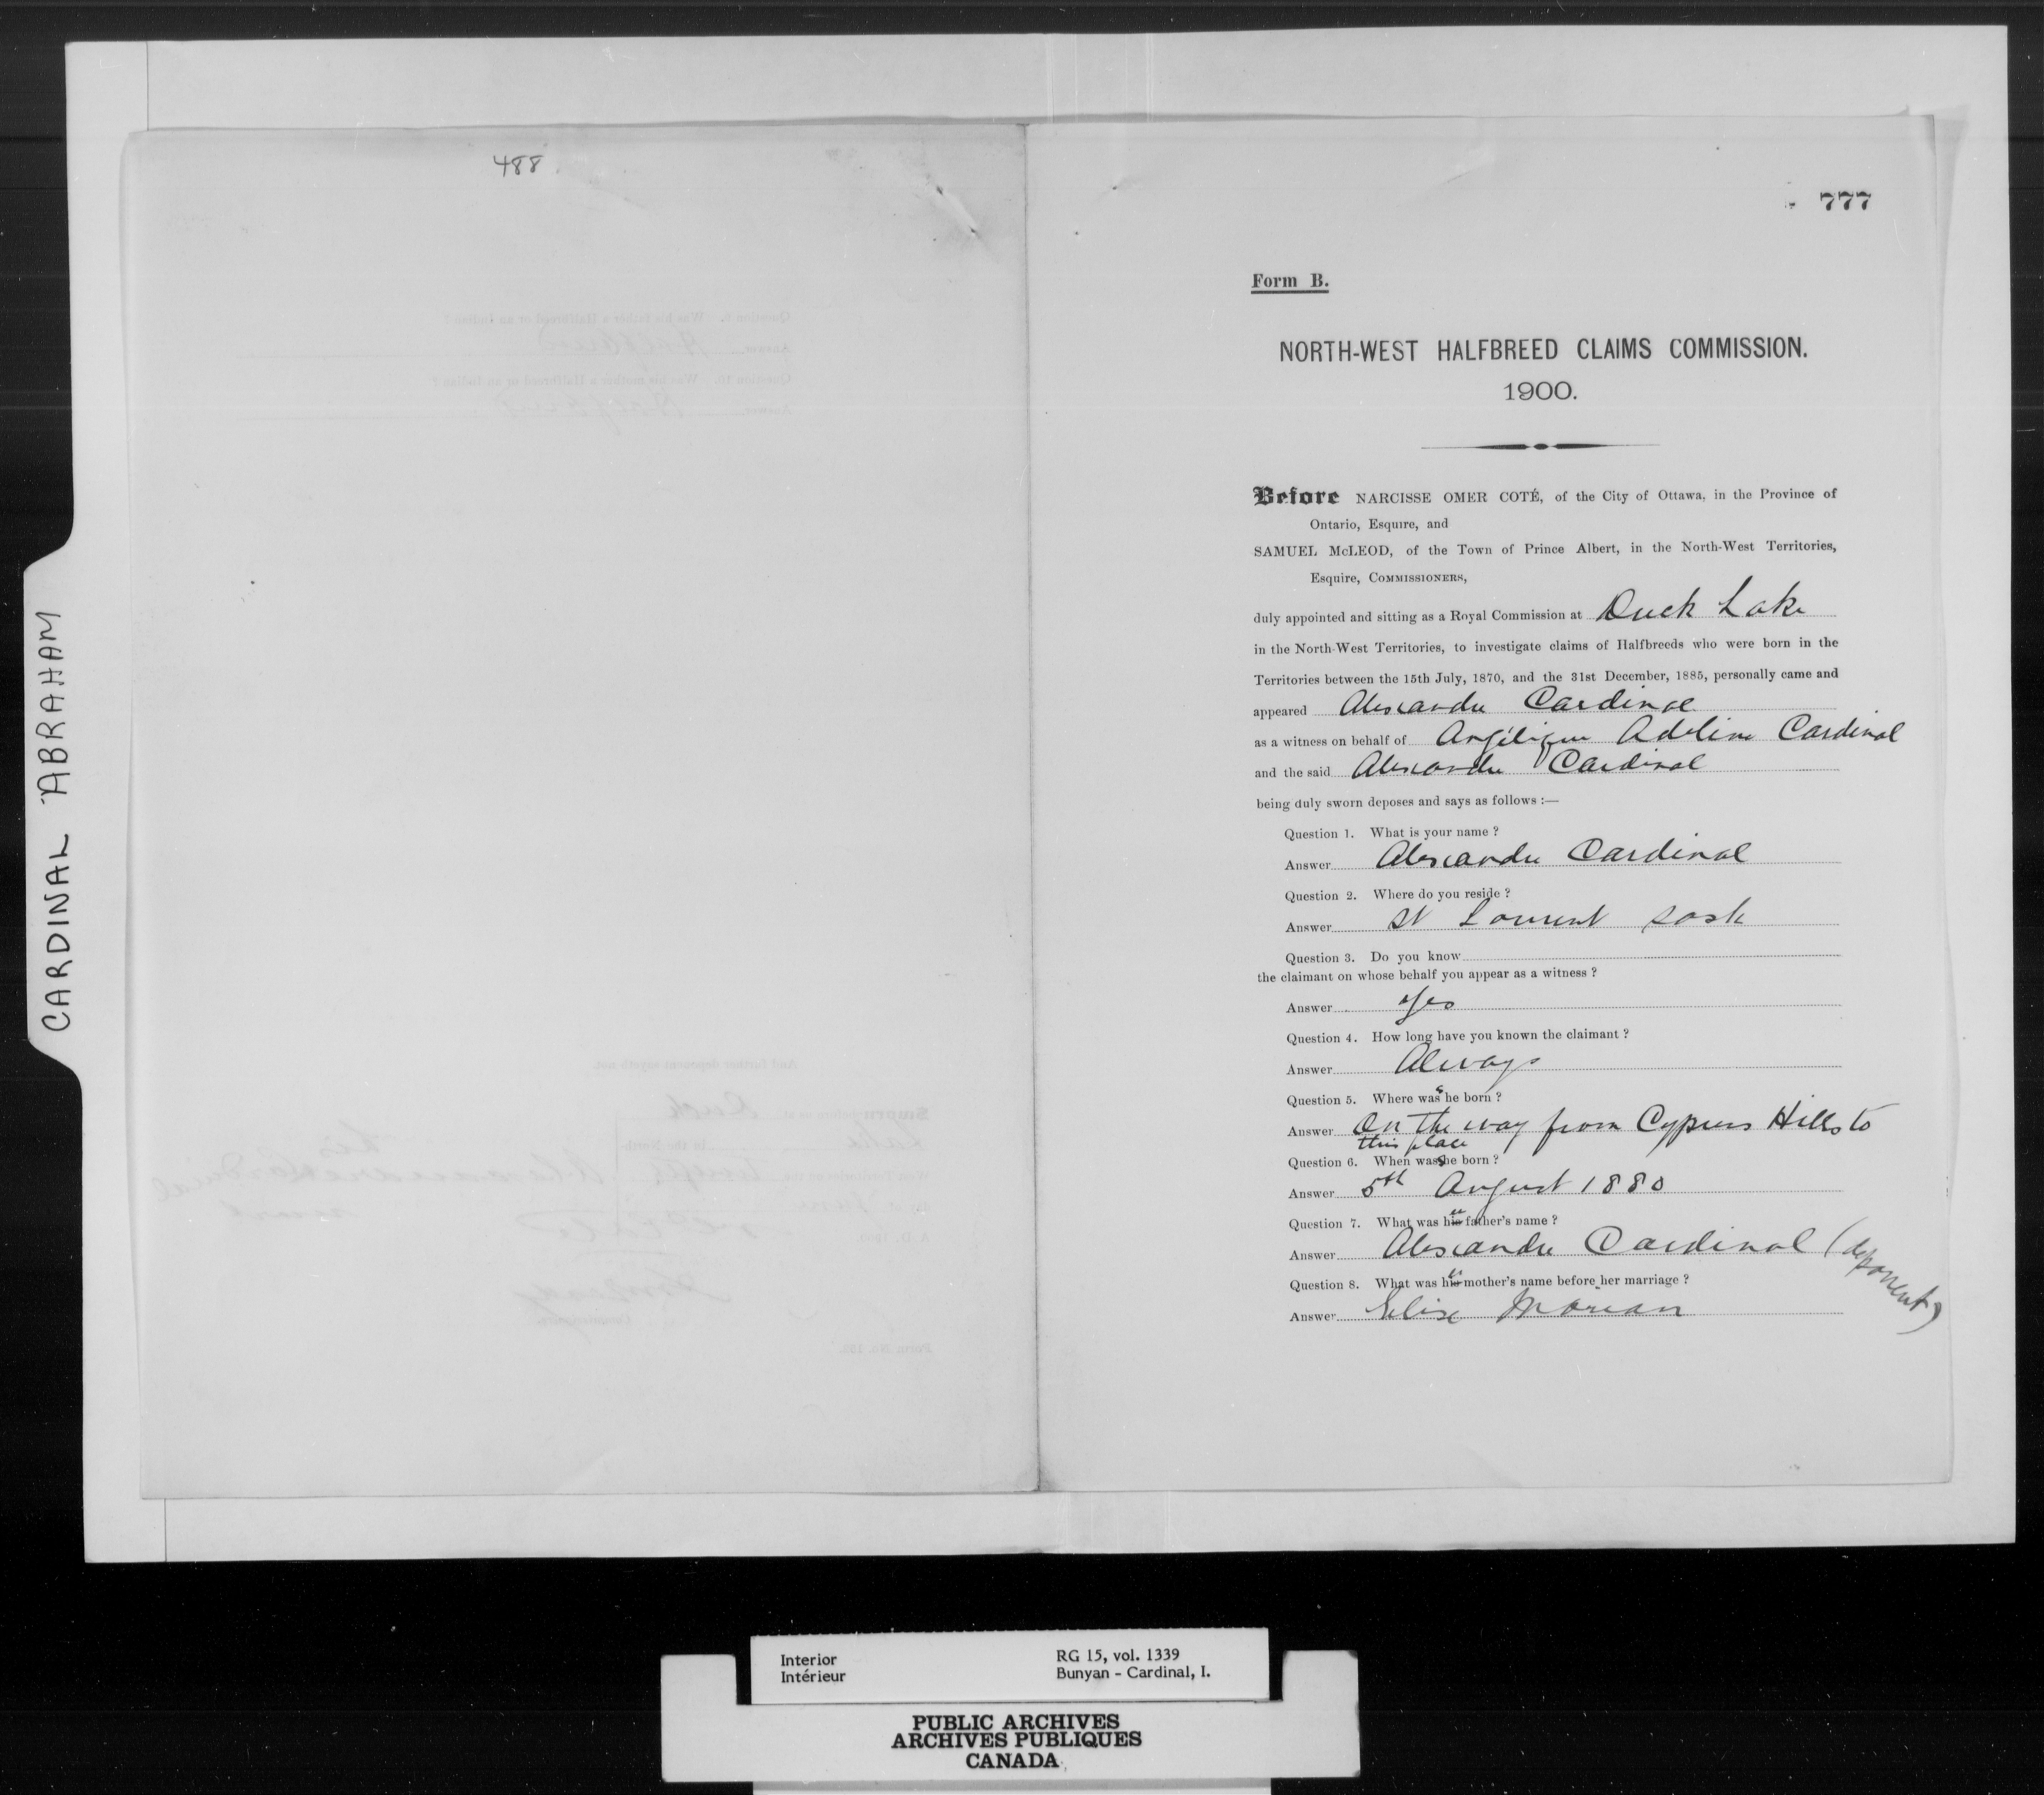 488
777
Form B.
NORTH-WEST HALFBREED CLAIMS COMMISSION.
1900.
Before NARCISSE OMER COTÉ, of the City of Ottawa, in the Province of
Ontario, Esquire, and
SAMUEL McLEOD, of the Town of Prince Albert, in the North-West Territories,
Esquire, COMMISSIONERS,
duly appointed and sitting as a Royal Commission at Duck Lake
in the North-West Territories, to investigate claims of Halfbreeds who were born in the
Territories between the 15th July, 1870, and the 31st December, 1885, personally came and
appeared Alexandre Cardinal
as a witness on behalf of Angélique Adeline Cardinal
and the said Alexandre Cardinal
being duly sworn deposes and says as follows :—
Question 1. What is your name ?
Answer Alexandre Cardinal
Question 2. Where do you reside ?
Answer St Laurent Sask
Question 3. Do you know
the claimant on whose behalf you appear as a witness ?
Answer Yes
Question 4. How long have you known the claimant ?
Answer Always
Question 5. Where was she born ?
Answer On the way from Cyprus Hills to
this place
Question 6. When was she born ?
Answer 5th August 1880
Question 7. What was his er father's name ?
Answer Alexandre Cardinal (deponent)
Question 8. What was his er mother's name before her marriage ?
Answer Elise Morian
CARDINAL ABRAHAM
Interior RG 15, vol. 1339
Intérieur Bunyan - Cardinal, I.
PUBLIC ARCHIVES
ARCHIVES PUBLIQUES
CANADA